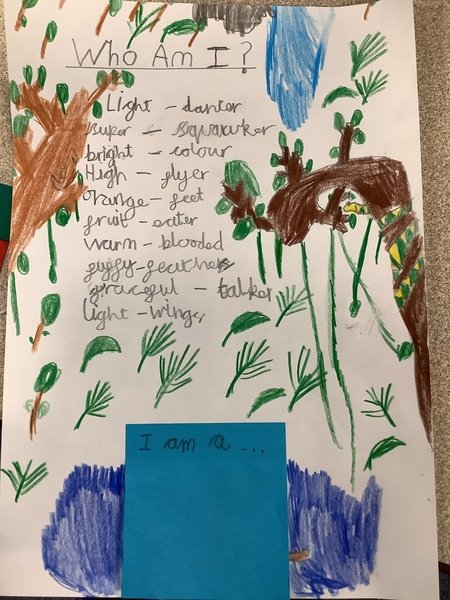 Who Am I?
Light - danter
super - squawker
bright - colour
High - flyer
Orange - feet
fruit - eater
warm - blooded
graceful - talker
light - wings
I am a ...